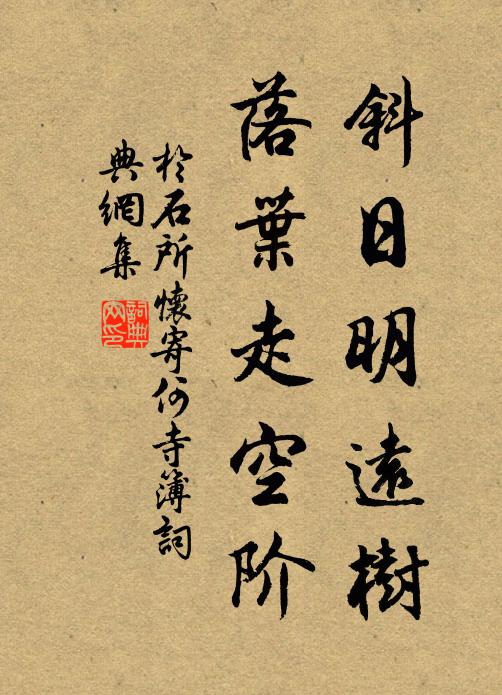 斜日明遠樹
落葉走空阶
於石所懷寄何寺簿詞
典網集
詞典網印